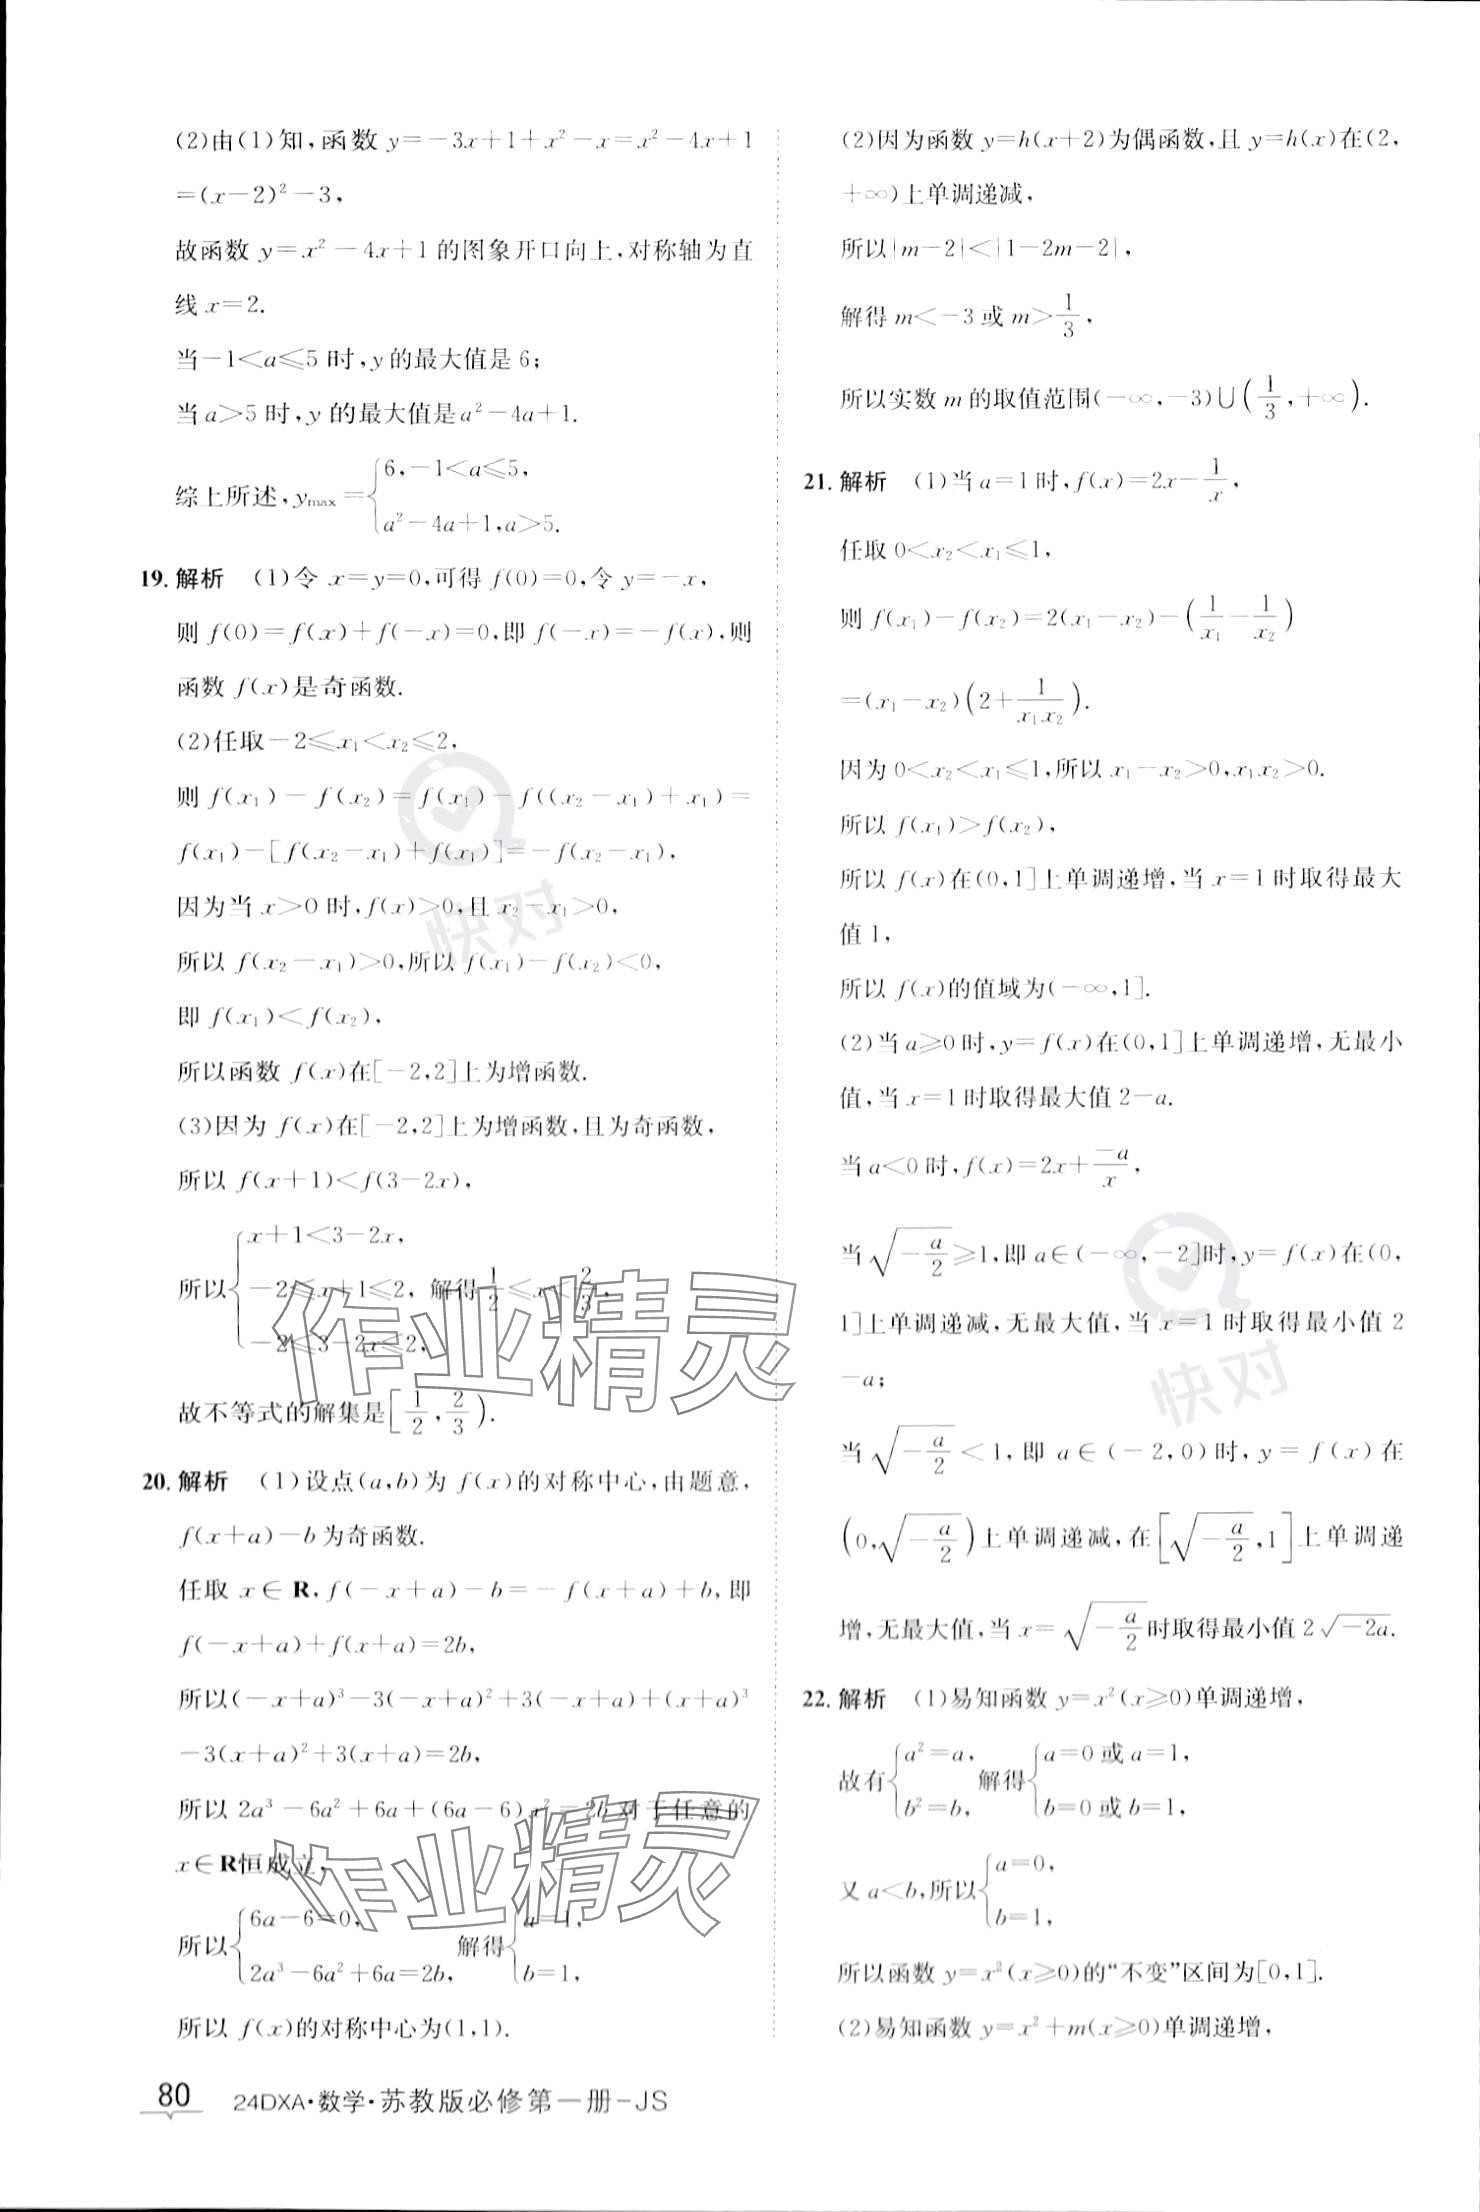 (2)由(1)知,函数 y=−3x+1+x²−x=x²−4x+1
=(x−2)²−3,
故函数 y=x²−4x+1 的图象开口向上,对称轴为直
线 x=2.
当−1<a≤5 时,y 的最大值是 6;
当 a>5 时,y 的最大值是 a²−4a+1.
综上所述,y_max={6,−1<a≤5,
a²−4a+1,a>5.
19. 解析 (1)令 x=y=0,可得 f(0)=0,令 y=−x,
则 f(0)=f(x)+f(−x)=0,即 f(−x)=−f(x),则
函数 f(x)是奇函数.
(2)任取−2≤x₁<x₂≤2,
则 f(x₁)−f(x₂)=f(x₁)−f((x₂−x₁)+x₁)=
f(x₁)−[f(x₂−x₁)+f(x₁)]=−f(x₂−x₁),
因为当 x>0 时,f(x)>0,且 x₂−x₁>0,
所以 f(x₂−x₁)>0,所以 f(x₁)−f(x₂)<0,
即 f(x₁)<f(x₂),
所以函数 f(x)在[−2,2]上为增函数.
(3)因为 f(x)在[−2,2]上为增函数,且为奇函数,
所以 f(x+1)<f(3−2x),
x+1<3−2x,
所以{−2≤x+1≤2, 解得 1/2≤x<2/3,
−2≤3−2x≤2,
故不等式的解集是[1/2,2/3).
20. 解析 (1)设点(a,b)为 f(x)的对称中心,由题意,
f(x+a)−b 为奇函数.
任取 x∈R,f(−x+a)−b=−f(x+a)+b,即
f(−x+a)+f(x+a)=2b,
所以(−x+a)³−3(−x+a)²+3(−x+a)+(x+a)³
−3(x+a)²+3(x+a)=2b,
所以 2a³−6a²+6a+(6a−6)x²=2b 对于任意的
x∈R恒成立,
所以{6a−6=0, 解得{a=1,
2a³−6a²+6a=2b, b=1,
所以 f(x)的对称中心为(1,1).
80 24DXA·数学·苏教版必修第一册−JS
(2)因为函数 y=h(x+2)为偶函数,且 y=h(x)在(2,
+∞)上单调递减,
所以|m−2|<|1−2m−2|,
解得 m<−3 或 m>1/3,
所以实数 m 的取值范围(−∞,−3)∪(1/3,+∞).
21. 解析 (1)当 a=1 时,f(x)=2x−1/x,
任取 0<x₂<x₁≤1,
则 f(x₁)−f(x₂)=2(x₁−x₂)−(1/x₁−1/x₂)
=(x₁−x₂)(2+1/x₁x₂).
因为 0<x₂<x₁≤1,所以 x₁−x₂>0,x₁x₂>0.
所以 f(x₁)>f(x₂),
所以 f(x)在(0,1]上单调递增,当 x=1 时取得最大
值 1,
所以 f(x)的值域为(−∞,1].
(2)当 a≥0 时,y=f(x)在(0,1]上单调递增,无最小
值,当 x=1 时取得最大值 2−a.
当 a<0 时,f(x)=2x+−a/x,
当√(−a/2)≥1,即 a∈(−∞,−2]时,y=f(x)在(0,
1]上单调递减,无最大值,当 x=1 时取得最小值 2
−a;
当√(−a/2)<1,即 a∈(−2,0)时,y=f(x)在
(0,√(−a/2))上单调递减,在[√(−a/2),1]上单调递
增,无最大值,当 x=√(−a/2)时取得最小值 2√−2a.
22. 解析 (1)易知函数 y=x²(x≥0)单调递增,
故有{a²=a, 解得{a=0 或 a=1,
b²=b, b=0 或 b=1,
又 a<b,所以{a=0,
b=1,
所以函数 y=x²(x≥0)的“不变”区间为[0,1].
(2)易知函数 y=x²+m(x≥0)单调递增,
快对
快对
作业精灵
作业精灵